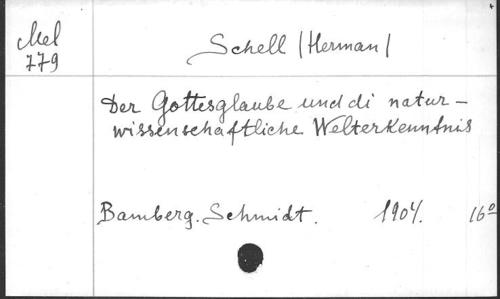 Mel
779
Schell (Herman)
Der Gottesglaube und di natur-
wissenschaftliche Welterkenntnis
Bamberg. Schmidt. 1904. 16°